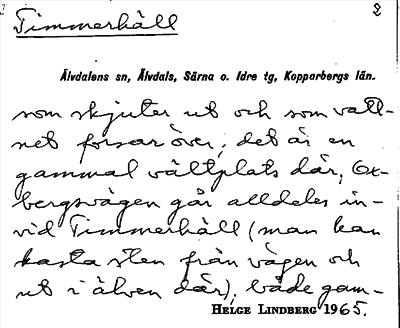 Timmerhäll
2
Älvdalens sn, Älvdals, Särna o. Idre tg, Kopparbergs län.
som skjuter ut och som vatt-
net forsar över; det är en
gammal vältplats där, Ox-
bergsvägen går alldeles in-
vid Timmerhäll (man kan
kasta sten från vägen och
ut i älven där), både gam-
HELGE LINDBERG 1965.